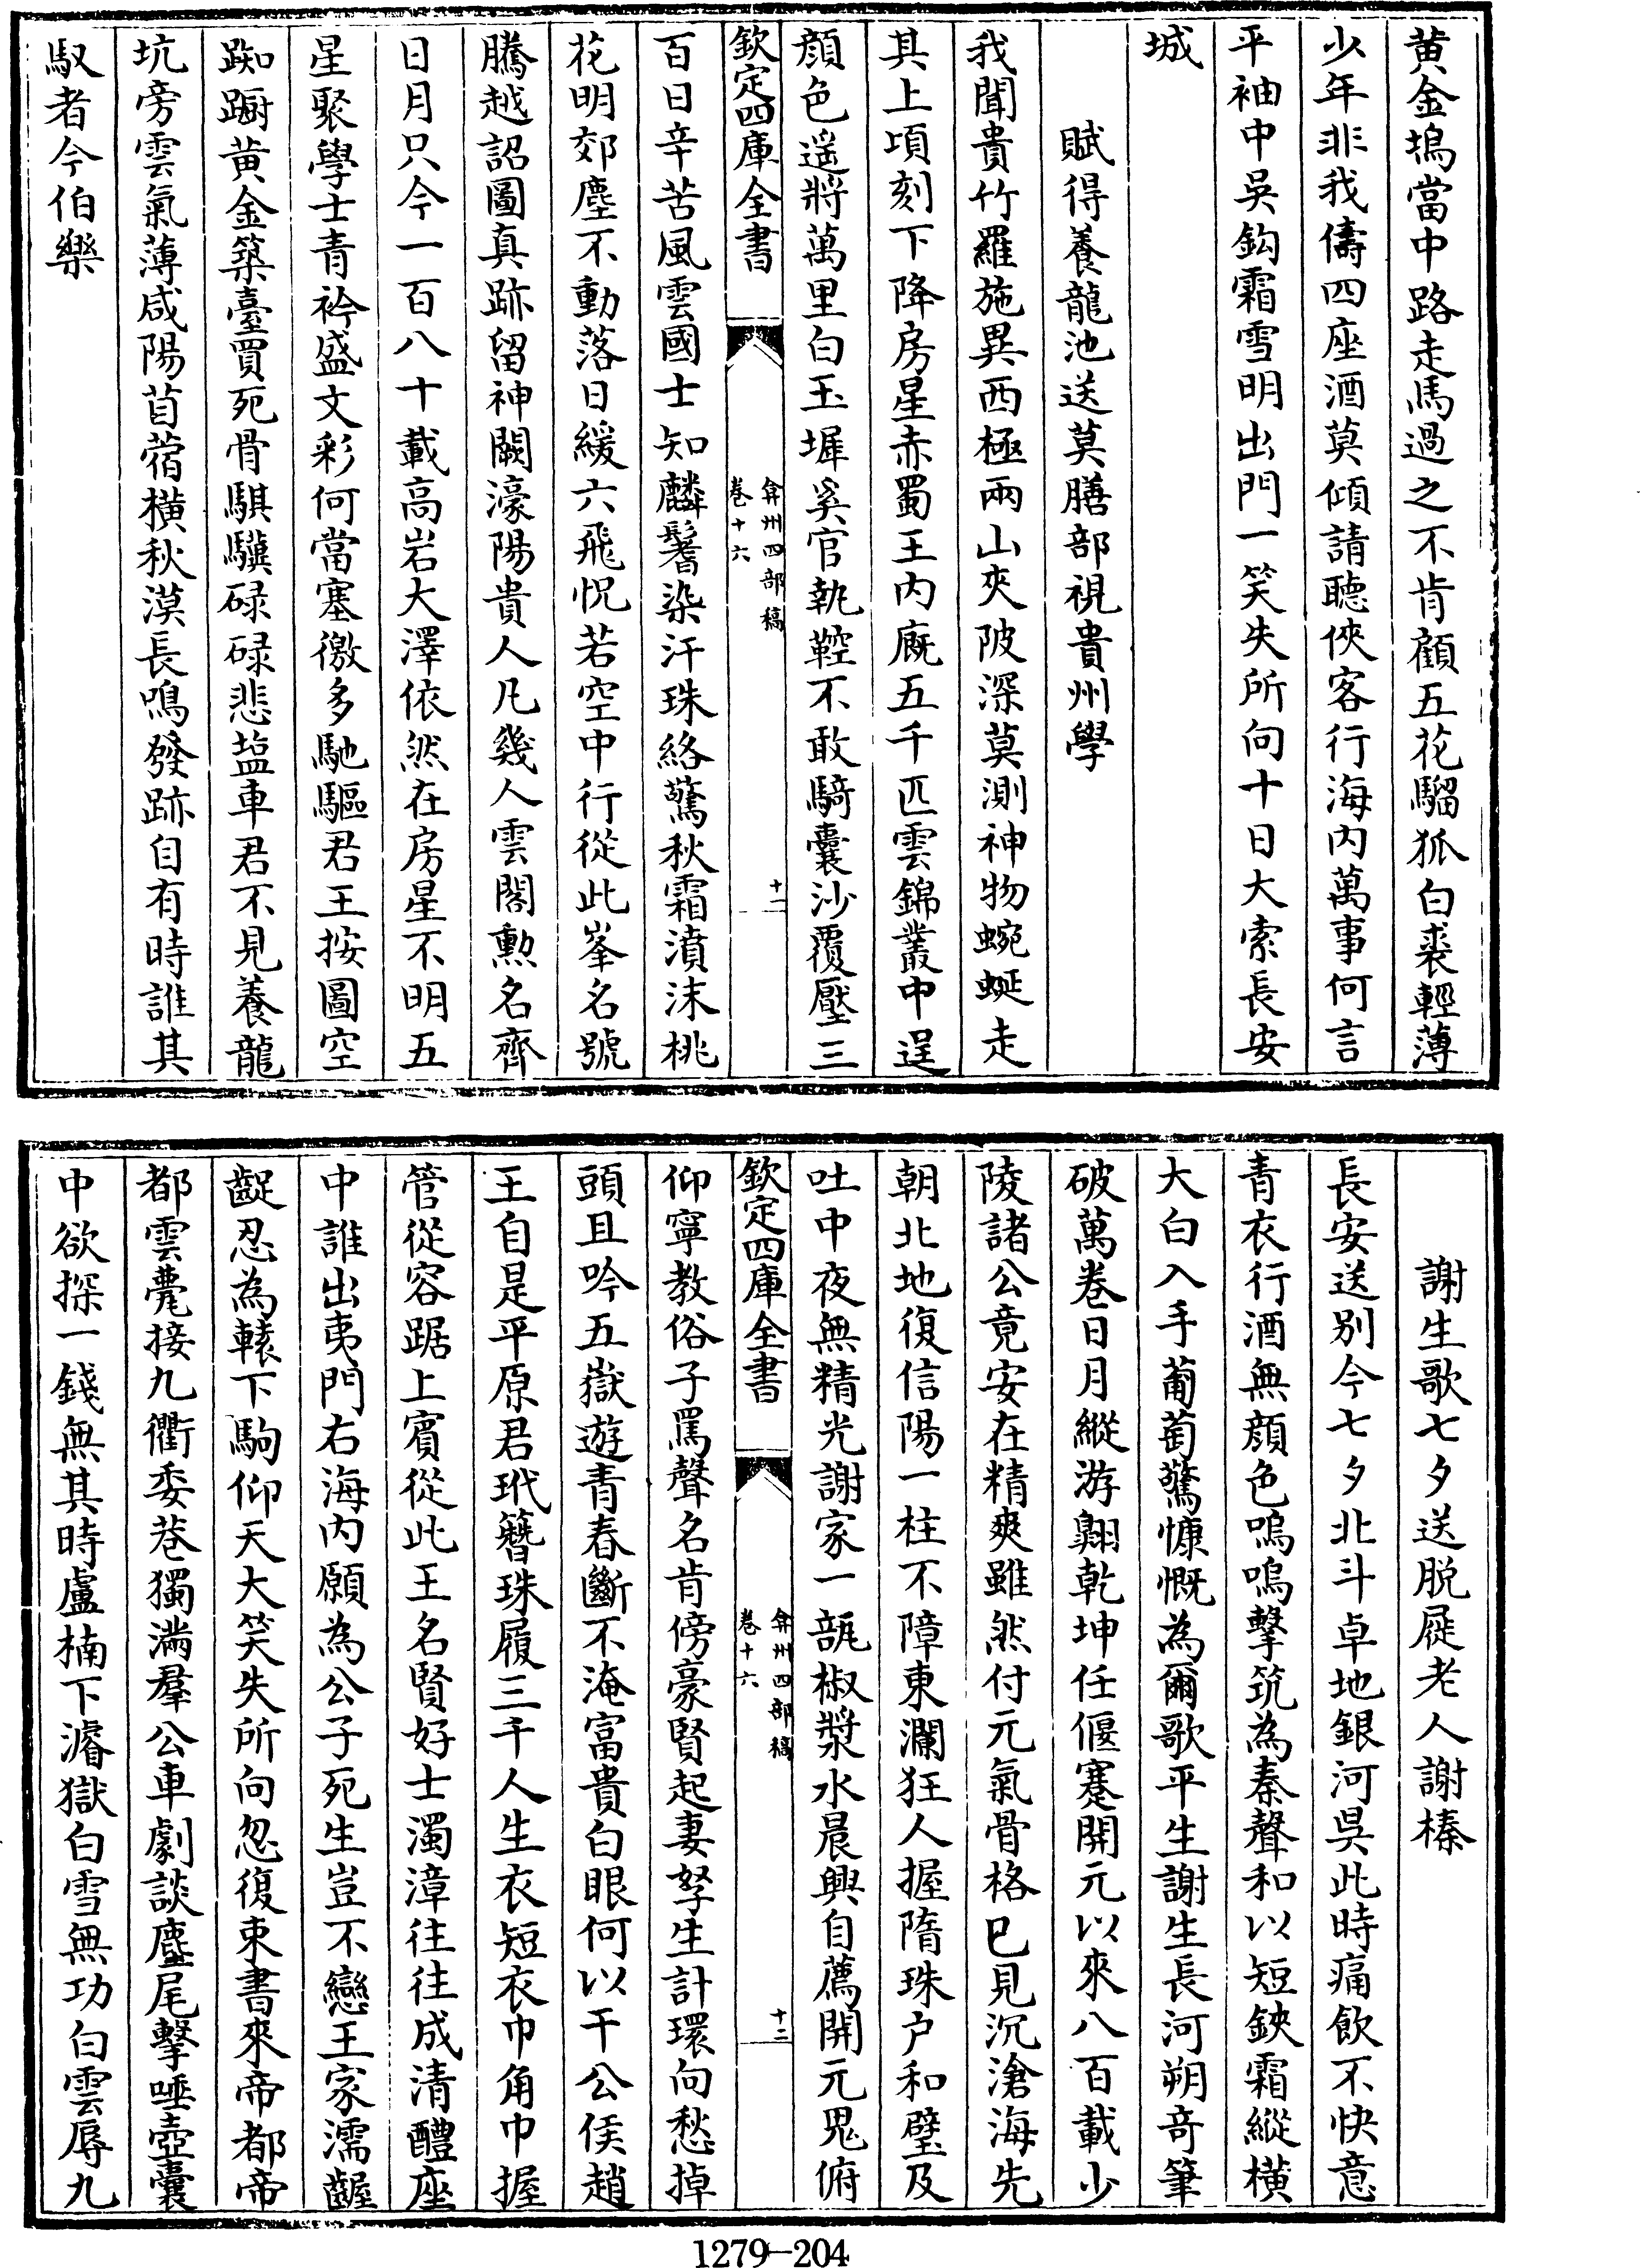 黄金塢當中路走馬過之不肯顧五花騮狐白裘輕薄
少年非我儔四座酒莫傾請聽俠客行海内萬事何言
平袖中吳鈎霜雪明出門一笑失所向十日大索長安
城
賦得養龍池送莫膳部視貴州學
我聞貴竹羅施異西極兩山夾陂深莫測神物蜿蜒走
其上頃刻下降房星赤蜀王内廐五千匹雲錦叢中逞
顔色遥將萬里白玉墀奚官執鞚不敢騎囊沙覆壓三
欽定四庫全書
弇州四部稿
卷十六
十一
百日辛苦風雲國士知麟鬐染汗珠絡驚秋霜濆沫桃
花明郊塵不動落日緩六飛怳若空中行從此峯名號
騰越詔圖真跡留神闕濠陽貴人凡幾人雲閣勲名齊
日月只今一百八十載高岩大澤依然在房星不明五
星聚學士青衿盛文彩何當塞徼多馳驅君王按圖空
踟蹰黄金築臺買死骨騏驥碌碌悲塩車君不見養龍
坑旁雲氣薄咸陽苜蓿横秋漠長鳴發跡自有時誰其
馭者今伯樂
謝生歌七夕送脱屣老人謝榛
長安送别今七夕北斗卓地銀河吳此時痛飲不快意
青衣行酒無顔色嗚嗚擊筑為秦聲和以短鋏霜縱横
大白入手葡萄驚慷慨為爾歌平生謝生長河朔竒筆
破萬巻日月縱游翺乾坤任偃蹇開元以來八百載少
陵諸公竟安在精爽雖然付元氣骨格已見沉滄海先
朝北地復信陽一柱不障東瀾狂人握隋珠户和璧及
吐中夜無精光謝家一瓿椒漿水晨興自薦開元鬼俯
欽定四庫全書
弇州四部稿
卷十六
十二
仰寧教俗子罵聲名肯傍豪賢起妻孥生計環向愁掉
頭且吟五嶽遊青春斷不淹富貴白眼何以干公侯趙
王自是平原君玳簪珠履三千人生衣短衣巾角巾握
管從容踞上賓從此王名賢好士濁漳往往成清醴座
中誰出夷門右海内願為公子死生豈不戀王家濡齷
齪忍為轅下駒仰天大笑失所向忽復束書來帝都帝
都雲甍接九衢委巷獨滿羣公車劇談麈尾擊唾壺囊
中欲探一錢無其時盧楠下濬獄白雪無功白雲辱九
1279—204